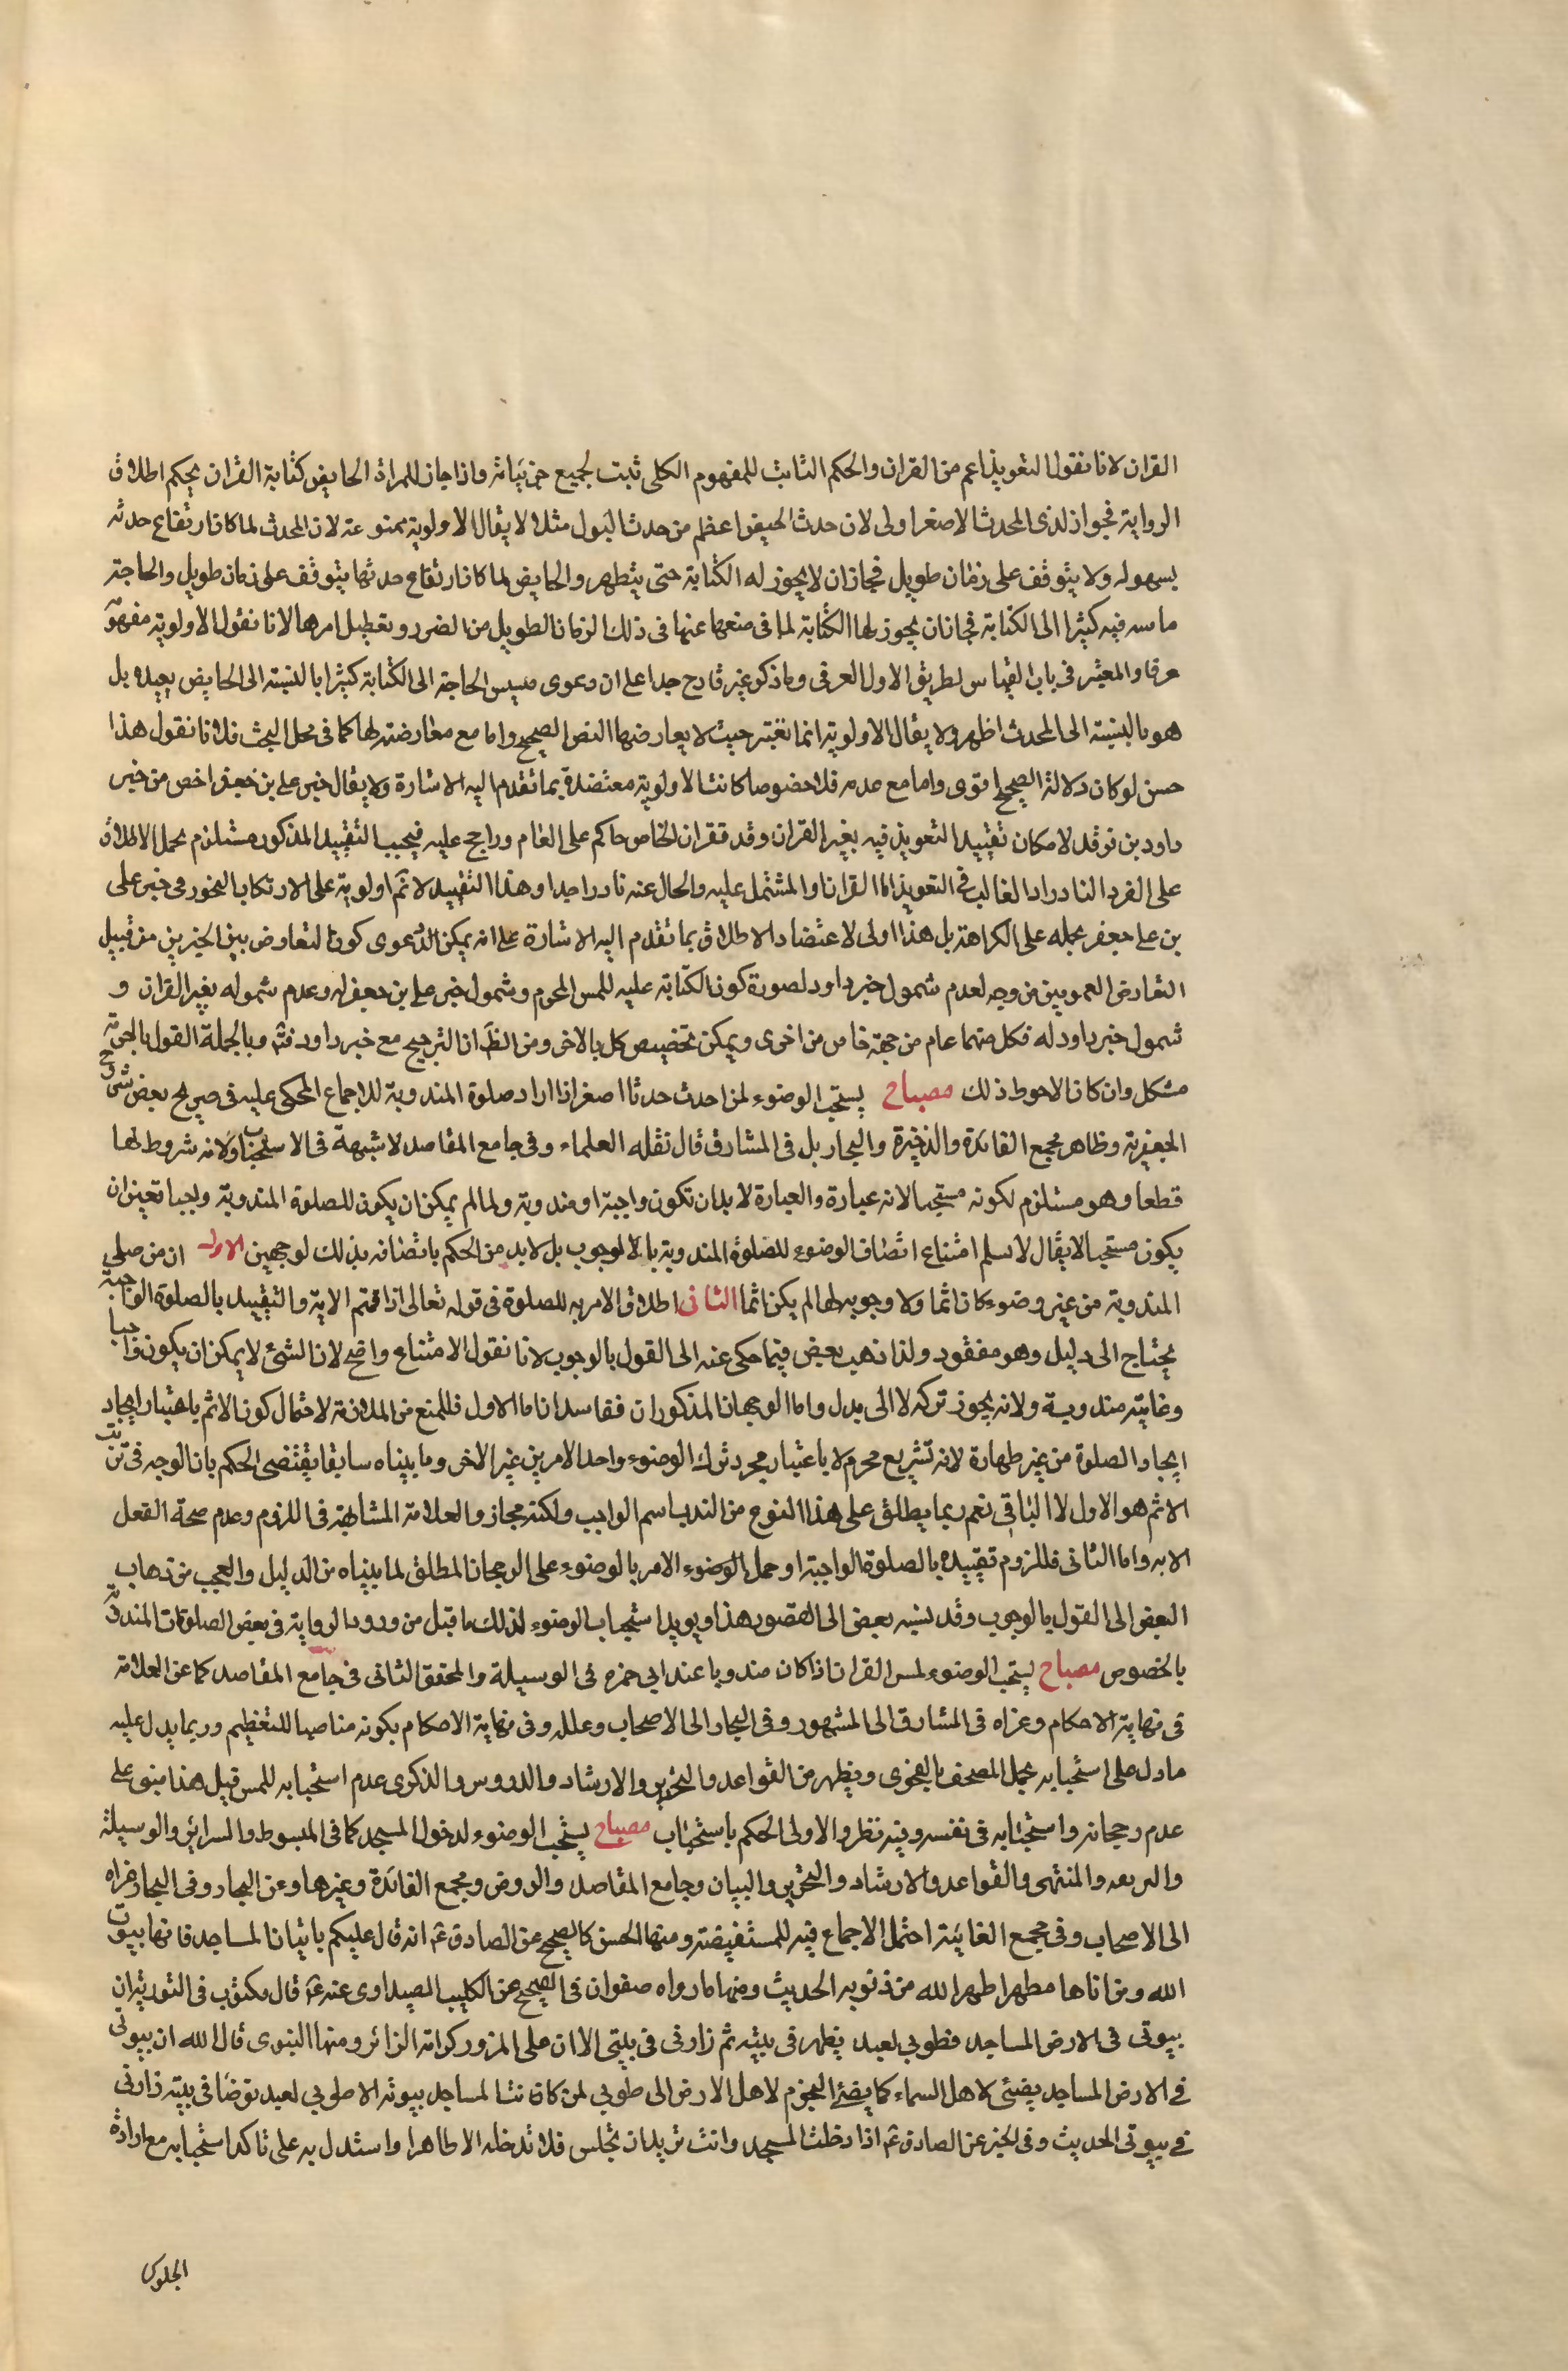 القران لانا نقول التعويذ اعم من القران والحكم الثابت للمفهوم الكلى ثبت لجميع جزئياته واذا جاز للمراة الحايض كتابة القران بحكم اطلاق
الرواية فجواز لذى المحدث الاصغر اولى لان حدث الحيض اعظم من حدث البول مثلا لا يقال الاولوية ممنوعة لان المحدث لما كان ارتفاع حدثه
بسهوله ولا يتوقف على زمان طويل فجاز ان لا يجوز له الكتابة حتى يتطهر والحايض لما كان ارتفاع حدثها يتوقف على زمان طويل والحاجة
ماسه فيه كثيرا الى الكتابة فجاز ان يجوز لها الكتابة لما فى منعها عنها فى ذلك الزمان الطويل من الضرر وتعطيل امرها لانا نقول الاولوية مفهومة
عرفا والمعتبر فى باب القياس لطريق الاول العرفى وما ذكر غير قادح جدا على ان دعوى مسيس الحاجة الى الكتابة كثيرا بالنسبة الى الحايض بعيده بل
هو بالنسبة الى المحدث اظهر ولا يقال الاولوية انما تعتبر حيث لا يعارضها النص الصحيح واما مع معارضته لها كما فى محل البحث فلا لانا نقول هذا
حسن لو كان دلالة الصحيح اقوى واما مع عدمه فلا خصوصا كانت الاولوية معتضدة بما تقدم اليه الاشارة ولا يقال خبر على بن جعفر اخص من خبر
داود بن فرقد لامكان تقييد التعويذ فيه بغير القران وقد تقرر ان الخاص حاكم على العام وراجح عليه فيجب التقييد المذكور مستلزم لحمل الاطلاق
على الفرد النادر اذ الغالب فى التعويذ اما القران او المشتمل عليه والخال عنه نادر جدا وهذا التقييد لا ثم اولوية على الارتكاب التجوز فى خبر على
بن على جعفر بحمله على الكراهة بل هذا اولى لاعتضاد الاطلاق بما تقدم اليه الاشارة على انه يمكن الدعوى كون التعارض بين الخبرين من قبيل
التعارض العمومين من وجه لعدم شمول خبر داود لصورة كون الكتابة عليه للمس المحرم وشمول خبر على بن جعفر له وعدم شموله بغير القران و
شمول خبر داود له فكل منهما عام من جهة خاص من اخرى ويمكن تخصيص كل بالاخر ومن الظ ان الترجيح مع خبر داود فتم وبالجملة القول بالحرمة
مشكل وان كان الاحوط ذلك مصباح يستحب الوضوء لمن احدث حدثا اصغر اذا اراد صلوة المندوبة للاجماع المحكى عليه فى صريح بعض شروح
الجعفرية وظاهر مجمع الفائدة والذخيرة والبحار بل فى المشارق قال نقله العلماء وفى جامع المقاصد لا شبهة فى الاستحباب ولانه شروط لها
قطعا وهو مستلزم لكونه مستحبا لانه عبادة والعبادة لا بد ان تكون واجبة او مندوبة ولما لم يمكن ان يكون للصلوة المندوبة واجبا تعين ان
يكون مستحبا لا يقال لا نسلم امتناع اتصاف الوضوء للصلوة المندوبة بالوجوب بل لا بد من الحكم باتصافه بذلك لوجهين الاول ان من صلى
المندوبة من غير وضوء كان اثما ولا وجوبه لها لم يكن اثما الثانى اطلاق الامر به للصلوة فى قوله تعالى اذا قمتم الاية والتقييد بالصلوة الواجبة
يحتاج الى دليل وهو مفقود ولذا ذهب بعض فيما حكى عنه الى القول بالوجوب لانا نقول الامتناع واضح لان الشئ لا يمكن ان يكون واجبا
وغايته مندوبة ولانه يجوز تركه لا الى بدل واما الوجهان المذكوران ففاسدان اما الاول فللمنع من الملازمة لاحتمال كون الاثم باعتبار ايجاد
ايجاد الصلوة من غير طهارة لانه تشريع محرم لا باعتبار مجرد ترك الوضوء واحد الامرين غير الاخر وما بيناه سابقا يقتضى الحكم بان الوجه فى ترتب
الاثم هو الاول لا الثانى نعم ربما يطلق على هذا النوع من الندب اسم الواجب ولكنه مجاز والعلاقة المشابهة فى اللزوم وعدم صحة الفعل
الا به واما الثانى فللزوم تقييده بالصلوة الواجبة او حمل الوضوء الامر بالوضوء على الرجحان المطلق لما بيناه من الدليل والعجب من ذهاب
البعض الى القول بالوجوب وقد نسبه بعض الى القصور هذا ويويد استحباب الوضوء لذلك ما قيل من ورود الرواية فى بعض الصلوات المندوبة
بالخصوص مصباح يستحب الوضوء لمس القران اذا كان مندوبا عند ابى حمزه فى الوسيلة والمحقق الثانى فى جامع المقاصد كما عن العلامة
فى نهاية الاحكام وعزاه فى المشارق الى المشهور وفى البحار الى الاصحاب وعلله وفى نهاية الاحكام بكونه مناصبا للتعظيم وربما يدل عليه
ما دل على استحبابه بحمل المصحف بالفحوى ويظهر من القواعد والتحرير والارشاد والدروس والذكرى عدم استحبابه للمس قيل هذا مبنى على
عدم رجحانه واستحبابه فى نفسه وفيه نظر والاولى الحكم باستحباب مصباح يستحب الوضوء لدخول المسجد كما فى المبسوط والسرائر والوسيلة
والمنتهى والقواعد والارشاد والتحرير والبيان وجامع المقاصد والروض ومجمع الفائدة وغيرها وعن البحار وفى البحار عزاه
الى الاصحاب وفى مجمع الفائدة احتمل الاجماع فيه للمستفيضة ومنها الحسن كالصحيح عن الصادق ع انه قال عليكم باتيان المساجد فانها بيوت
الله ومن اتاها مطهرا طهره الله من ذنوبه الحديث ومنها ما رواه صفوان فى الصحيح عن الكليب الصيداوى عنه ع قال مكتوب فى التورية ان
بيوتى فى الارض المساجد فطوبى لعبد يطهر فى بيته ثم زارنى فى بيتى الا ان على المزور كرامة الزائر ومنها النبوى قال الله ان بيوتى
فى الارض المساجد يضئى لاهل السماء كما يضئ النجوم لاهل الارض الى طوبى لمن كانت المساجد بيوته الا طوبى لعبد توضا فى بيته زارنى
فى بيوتى الحديث وفى الخبر عن الصادق ع اذا دخلت المسجد وانت تريد ان تجلس فلا تدخله الا طاهرا واستدل به على تاكد استحبابه مع ارادة
الجلوس